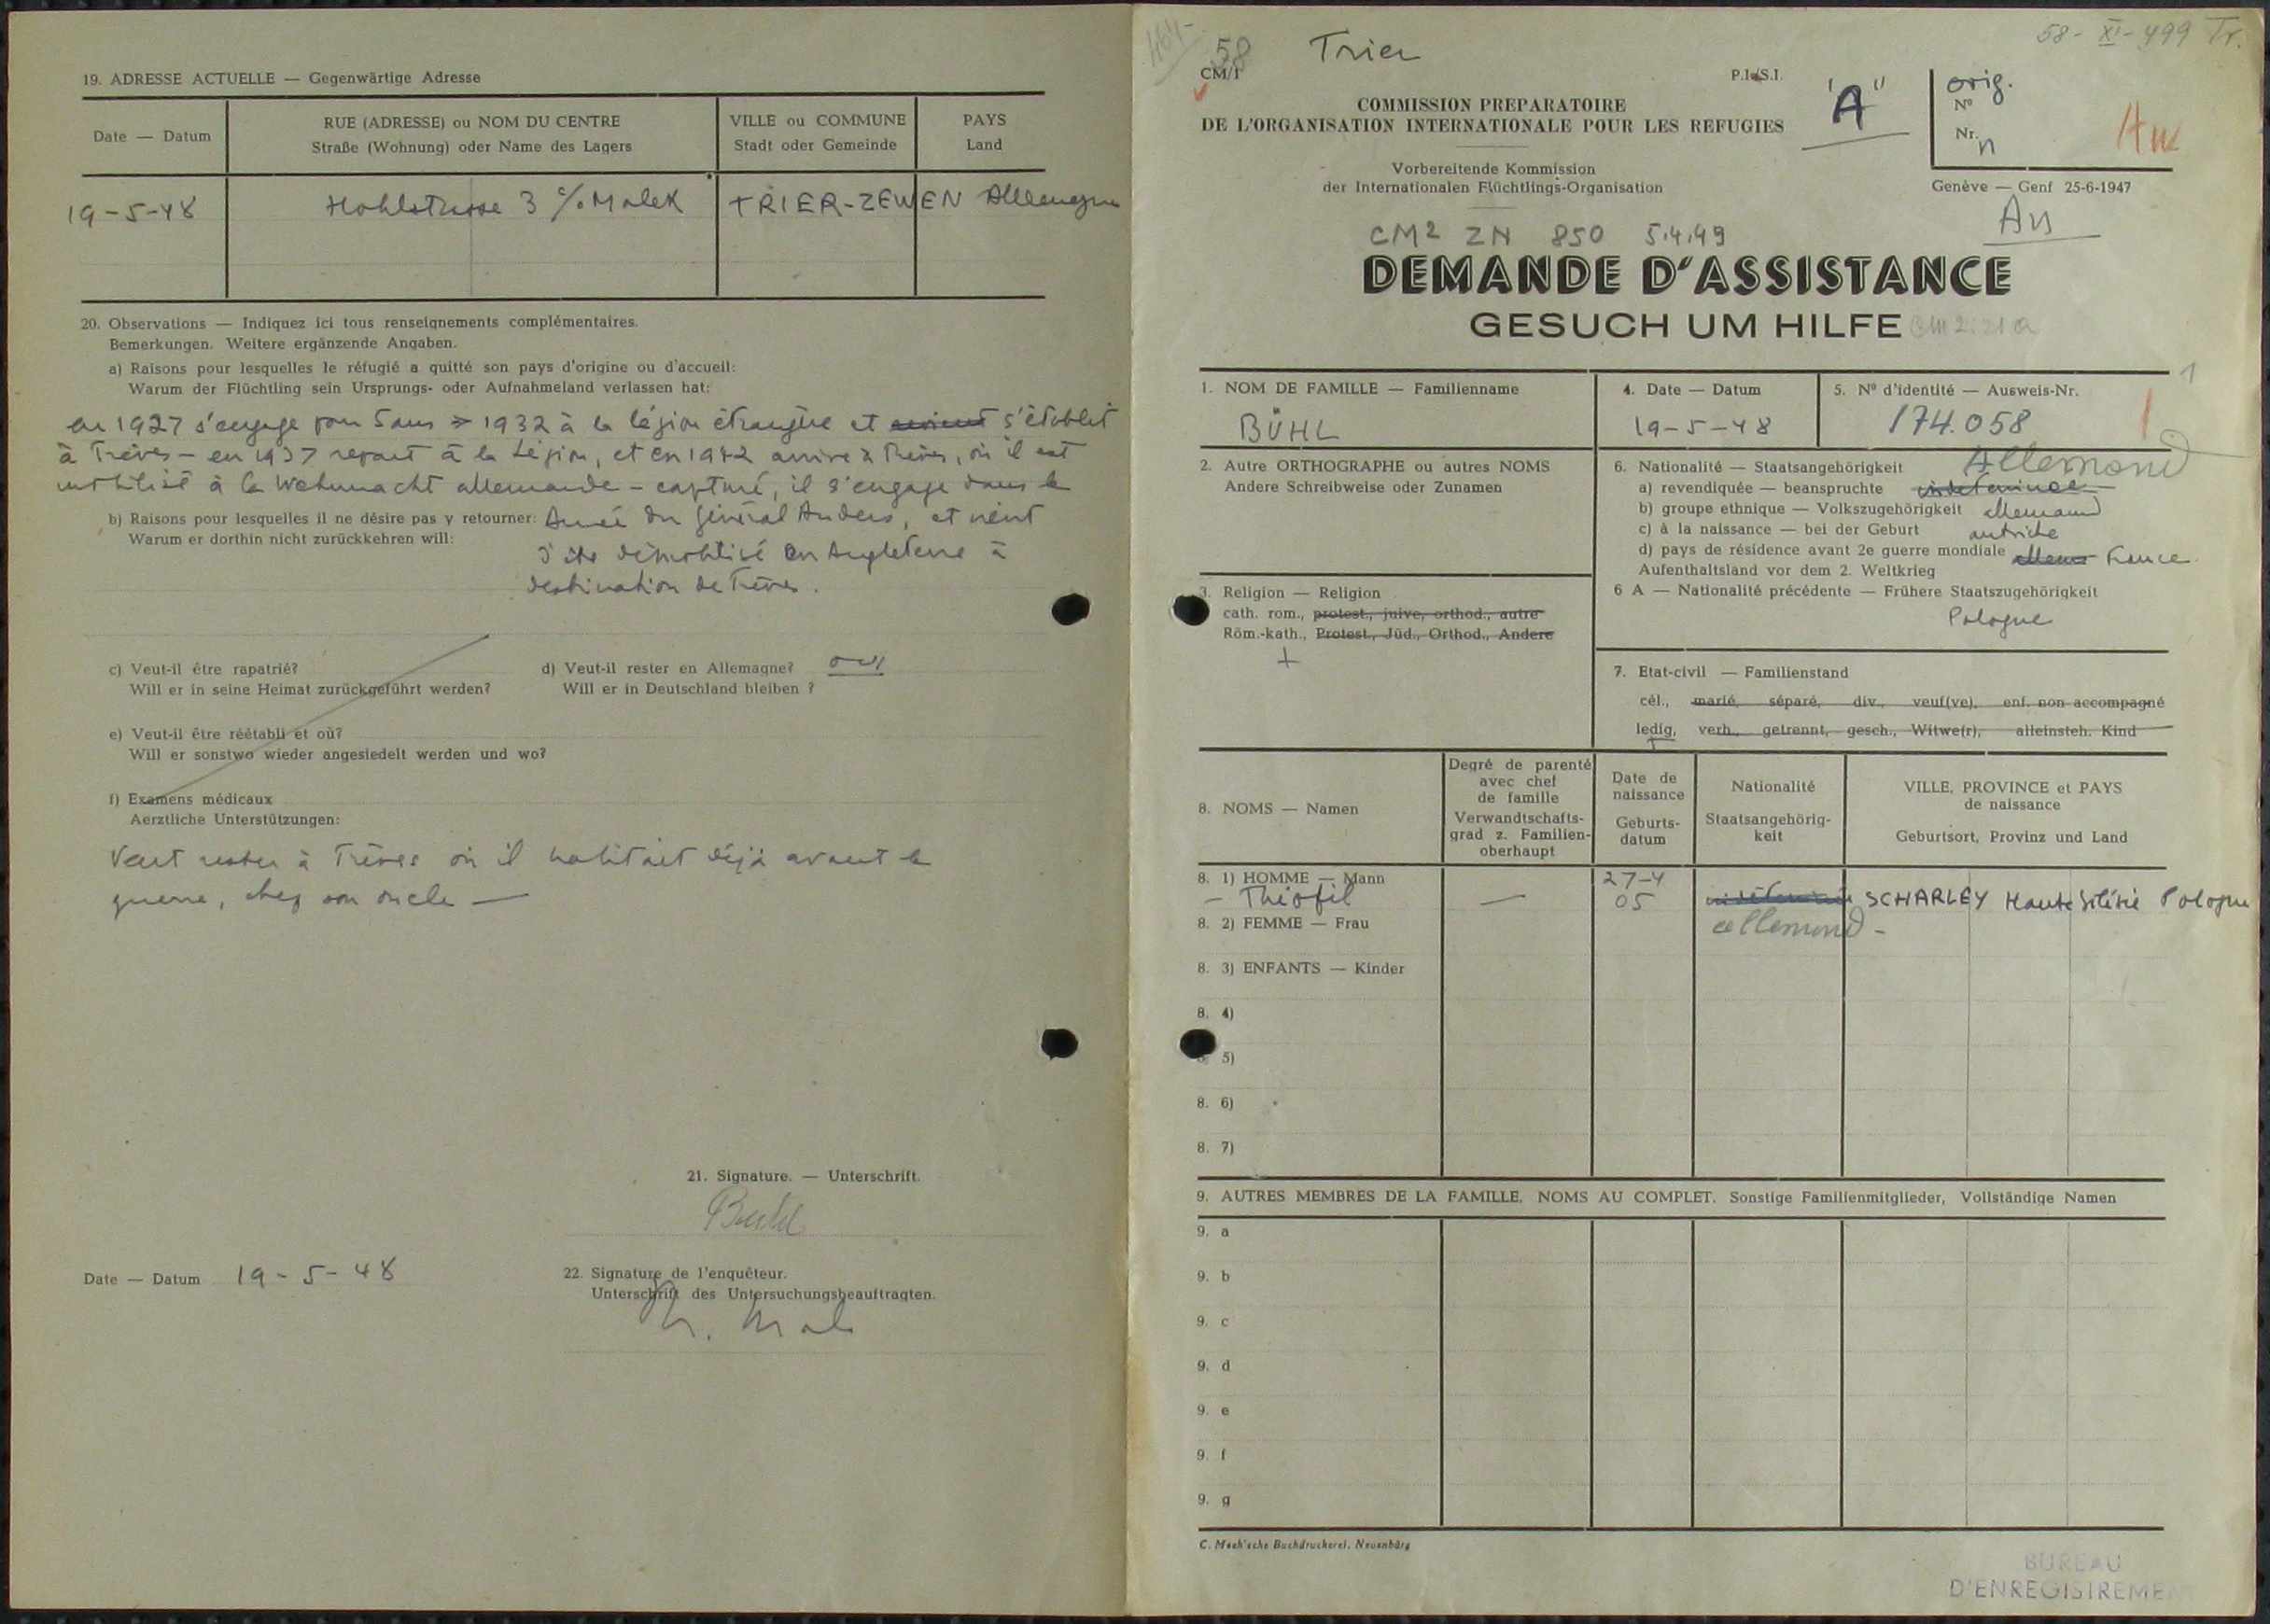 19. ADRESSE ACTUELLE — Gegenwärtige Adresse
Date — Datum
RUE (ADRESSE) ou NOM DU CENTRE
Straße (Wohnung) oder Name des Lagers
VILLE ou COMMUNE
Stadt oder Gemeinde
PAYS
Land
19-5-48 Hohlstrasse 3 c/o Malek TRIER-ZEWEN Allemagne
20. Observations — Indiquez ici tous renseignements complémentaires.
Bemerkungen. Weitere ergänzende Angaben.
a) Raisons pour lesquelles le réfugié a quitté son pays d'origine ou d'accueil:
Warum der Flüchtling sein Ursprungs- oder Aufnahmeland verlassen hat:
en 1927 s'engage pour 5 ans > 1932 à la légion étrangère et s'établit
à Trèves - en 1937 repart à la Légion, et en 1942 arrive à Trèves, où il est
mobilisé à la Wehrmacht allemande - capturé, il s'engage dans le
b) Raisons pour lesquelles il ne désire pas y retourner: Armée du Général Anders, et vient
Warum er dorthin nicht zurückkehren will:
d'être démobilisé en Angleterre à
destination de Trèves.
c) Veut-il être rapatrié?
Will er in seine Heimat zurückgeführt werden?
d) Veut-il rester en Allemagne? oui
Will er in Deutschland bleiben ?
e) Veut-il être réétabli et où?
Will er sonstwo wieder angesiedelt werden und wo?
f) Examens médicaux
Aerztliche Unterstützungen:
Veut rester à Trèves où il habitait déjà avant la
guerre, chez son oncle —
21. Signature. — Unterschrift.
Buhl
Date — Datum 19-5-48
22. Signature de l'enquêteur.
Unterschrift des Untersuchungsbeauftragten.
58 Trier
58-XI-499 Tr.
CM/1
P.I./S.I.
"A"
orig.
Nº
Nr.
n
COMMISSION PREPARATOIRE
DE L'ORGANISATION INTERNATIONALE POUR LES REFUGIES
Vorbereitende Kommission
der Internationalen Flüchtlings-Organisation
Genève — Genf 25-6-1947
CM2 ZN 850 5.4.49
DEMANDE D'ASSISTANCE
GESUCH UM HILFE
1. NOM DE FAMILLE — Familienname
BÜHL
4. Date — Datum
19-5-48
5. Nº d'identité — Ausweis-Nr.
174.058
2. Autre ORTHOGRAPHE ou autres NOMS
Andere Schreibweise oder Zunamen
6. Nationalité — Staatsangehörigkeit Allemand
a) revendiquée — beanspruchte indeterminée
b) groupe ethnique — Volkszugehörigkeit allemand
c) à la naissance — bei der Geburt autriche
d) pays de résidence avant 2e guerre mondiale France
Aufenthaltsland vor dem 2. Weltkrieg
6 A — Nationalité précédente — Frühere Staatszugehörigkeit
Pologne
3. Religion — Religion
cath. rom., protest., juive, orthod., autre
Röm.-kath., Protest., Jüd., Orthod., Andere
7. Etat-civil — Familienstand
cél., marié, séparé, div., veuf(ve), enf. non accompagné
ledig, verh., getrennt, gesch., Witwe(r), alleinsteh. Kind
8. NOMS — Namen
Degré de parenté
avec chef
de famille
Verwandtschafts-
grad z. Familien-
oberhaupt
Date de
naissance
Geburts-
datum
Nationalité
Staatsangehörig-
keit
VILLE, PROVINCE et PAYS
de naissance
Geburtsort, Provinz und Land
8. 1) HOMME — Mann
- Théofil — 27-4 05 indéterminée SCHARLEY Haute Silésie Pologne
8. 2) FEMME — Frau
allemand -
8. 3) ENFANTS — Kinder
8. 4)
8. 5)
8. 6)
8. 7)
9. AUTRES MEMBRES DE LA FAMILLE, NOMS AU COMPLET. Sonstige Familienmitglieder, Vollständige Namen
9. a
9. b
9. c
9. d
9. e
9. f
9. g
C. Meeh'sche Buchdruckerei, Neuenbürg
BUREAU
D'ENREGISTREME